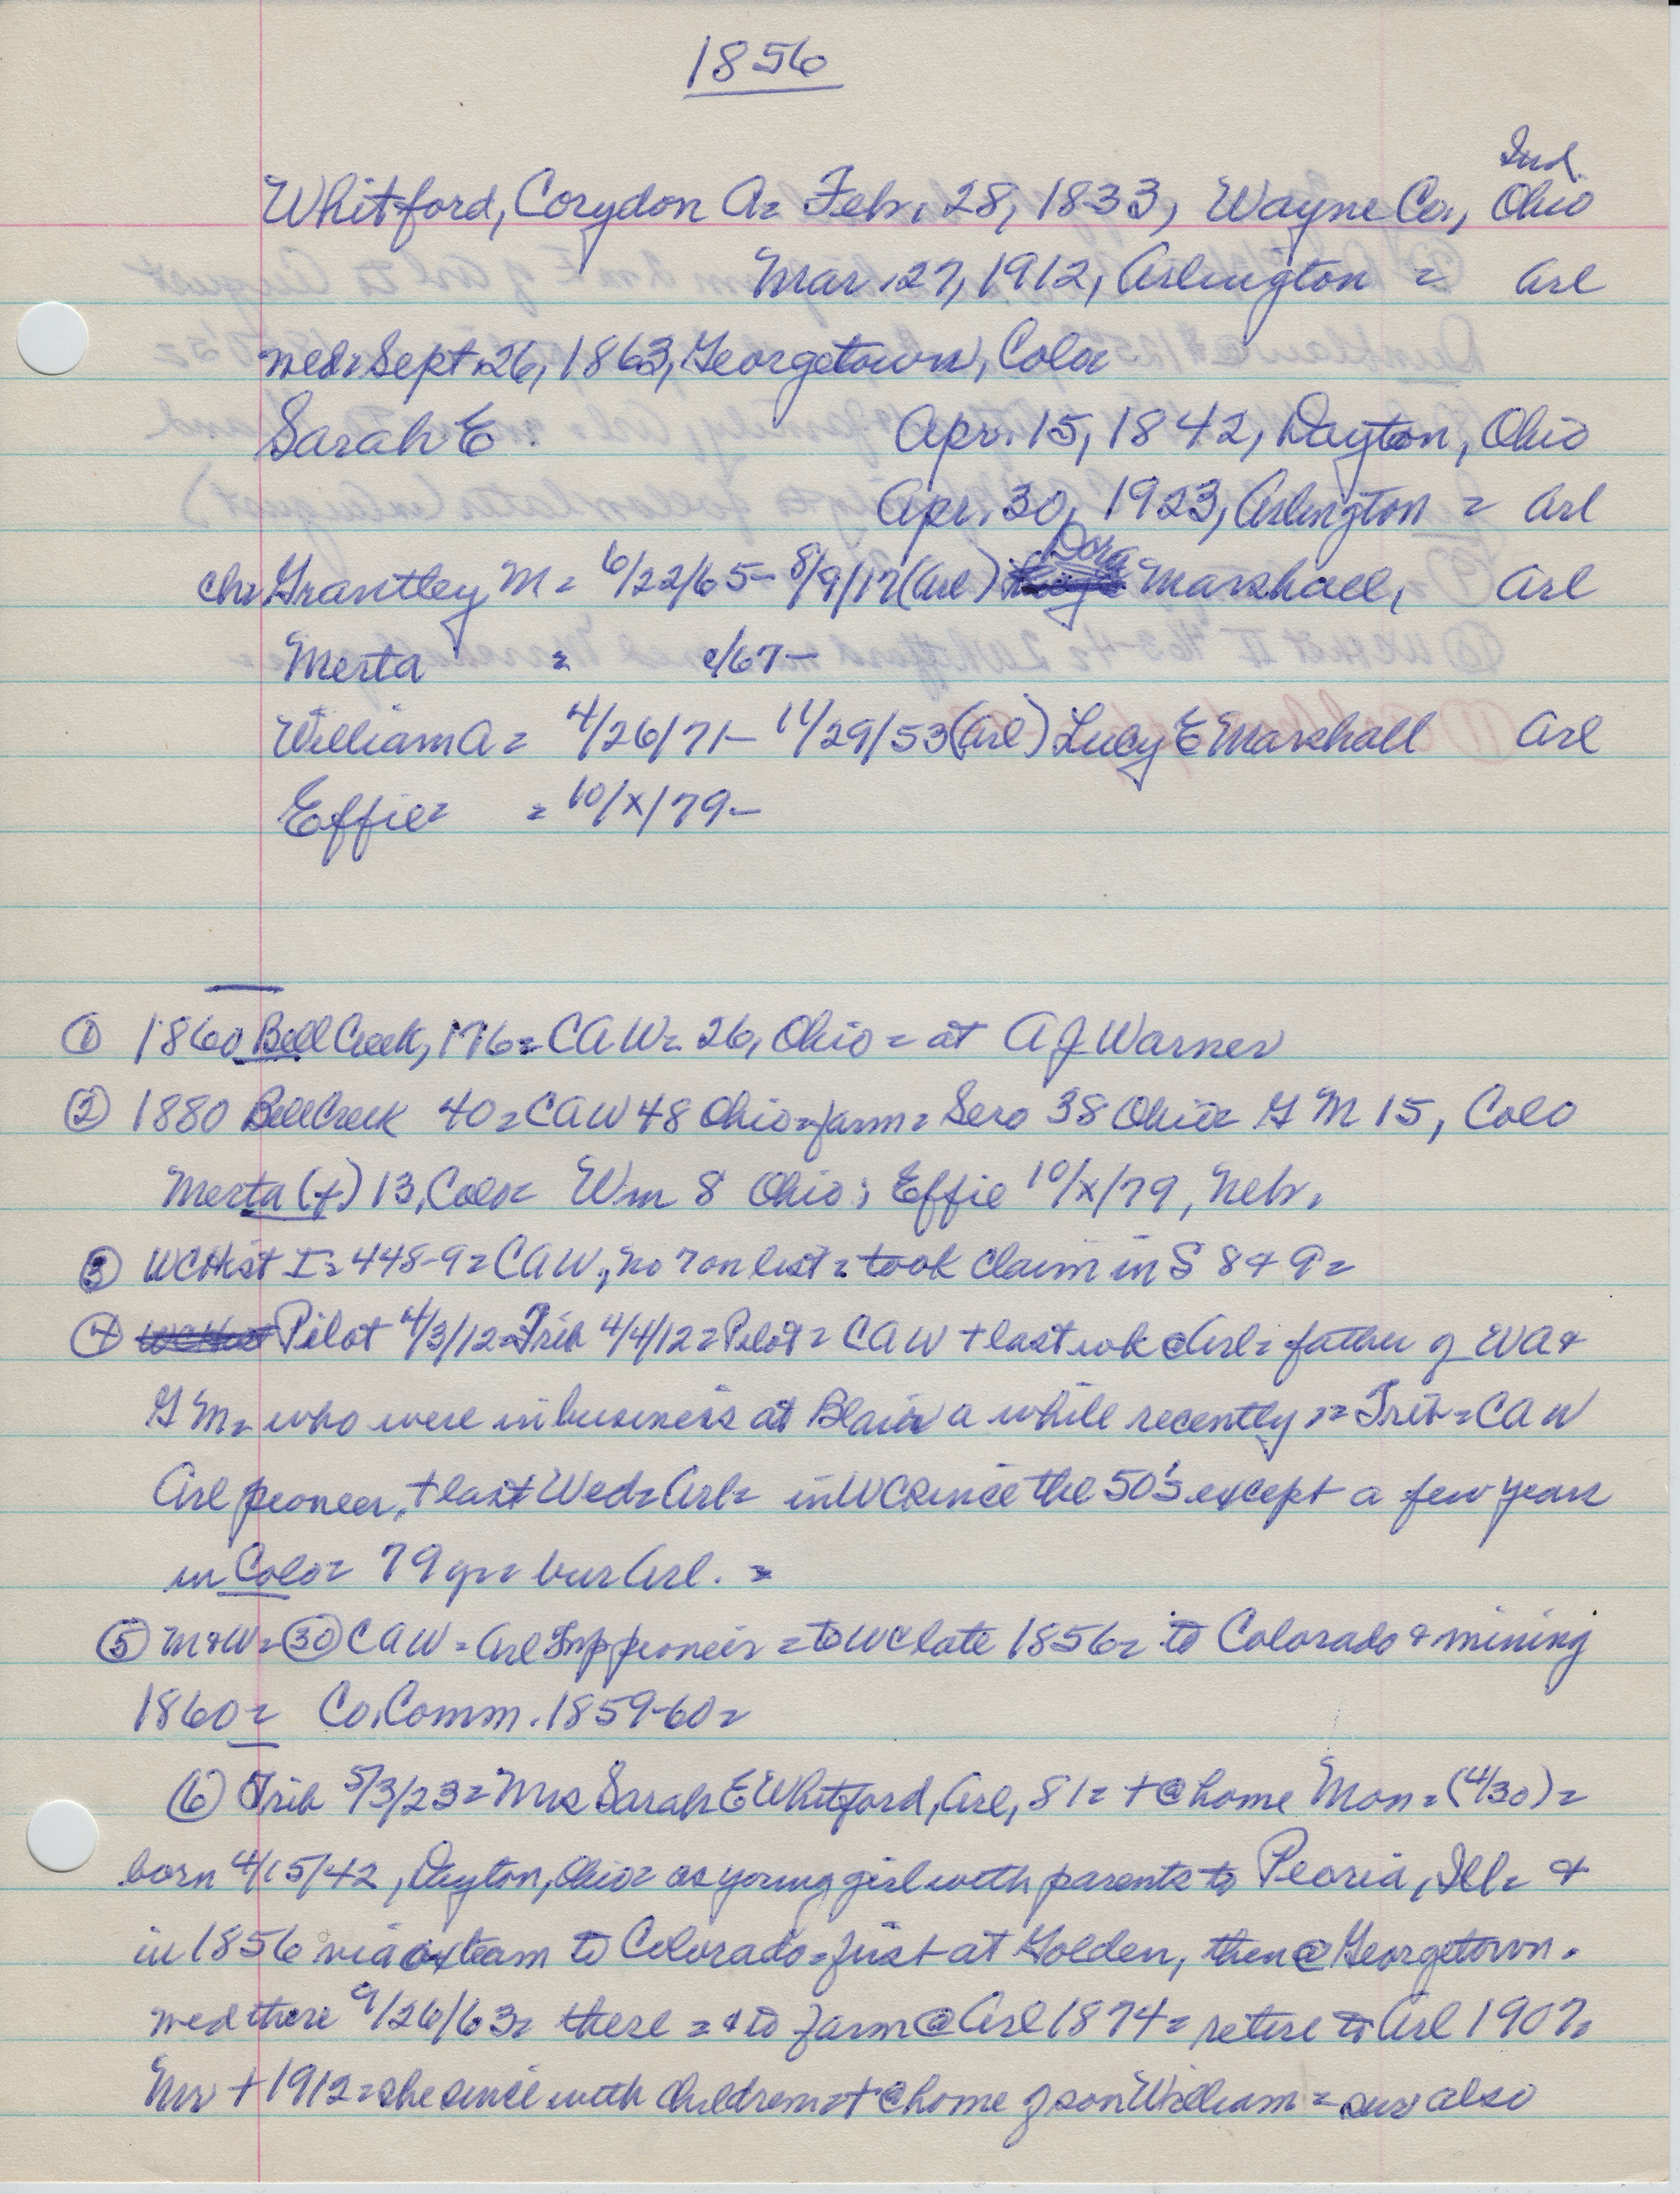 1856
Ind.
Whitford, Corydon A= Feb. 28, 1833, Wayne Co., Ohio
Mar. 27, 1912, Arlington = Arl
wed= Sept. 26, 1863, Georgetown, Colo=
Sarah E. Apr. 15, 1842, Dayton, Ohio
Apr. 30, 1923, Arlington = Arl
Dora
ch= Grantley M= 6/22/65- 8/9/17(Arl) Marshall, Arl
Merta = c/67-
William A= 4/26/71- 11/29/53(Arl) Lucy E Marshall Arl
Effie= = 10/x/79-
① 1860 Bell Creek, 176= CAW= 26, Ohio= at A J Warner
② 1880 Bell Creek 40= CAW 48 Ohio=farm= Sara 38 Ohio= G M 15, Colo
Merta (f) 13, Colo= Wm 8 Ohio; Effie 10/x/79, Nebr.
③ WCHist I= 448-9= CAW, no 7 on list= took claim in S 8 & 9=
④ Pilot 4/3/12=Trib 4/4/12=Pilot= CAW + last wk @Arl= father of WA &
GM= who were in business at Blair a while recently == Trib=CAW
Arl pioneer, + last Wed= Arl= in WC since the 50's except a few years
in Colo= 79 yr= bur Arl. =
⑤ M&W= ㉚ CAW= Arl Twp pioneer = to WC late 1856= to Colorado & mining
1860= Co. Comm. 1859-60=
⑥ Trib 5/3/23= Mrs Sarah E Whitford, Arl, 81= + @ home Mon= (4/30)=
born 4/15/42, Dayton, Ohio= as young girl with parents to Peoria, Ill= &
in 1856 via ox team to Colorado= first at Golden, then @ Georgetown.
wed there 9/26/63= there = & to farm @ Arl 1874= retire to Arl 1907=
Mr + 1912= she since with children= + @ home of son William = sur also